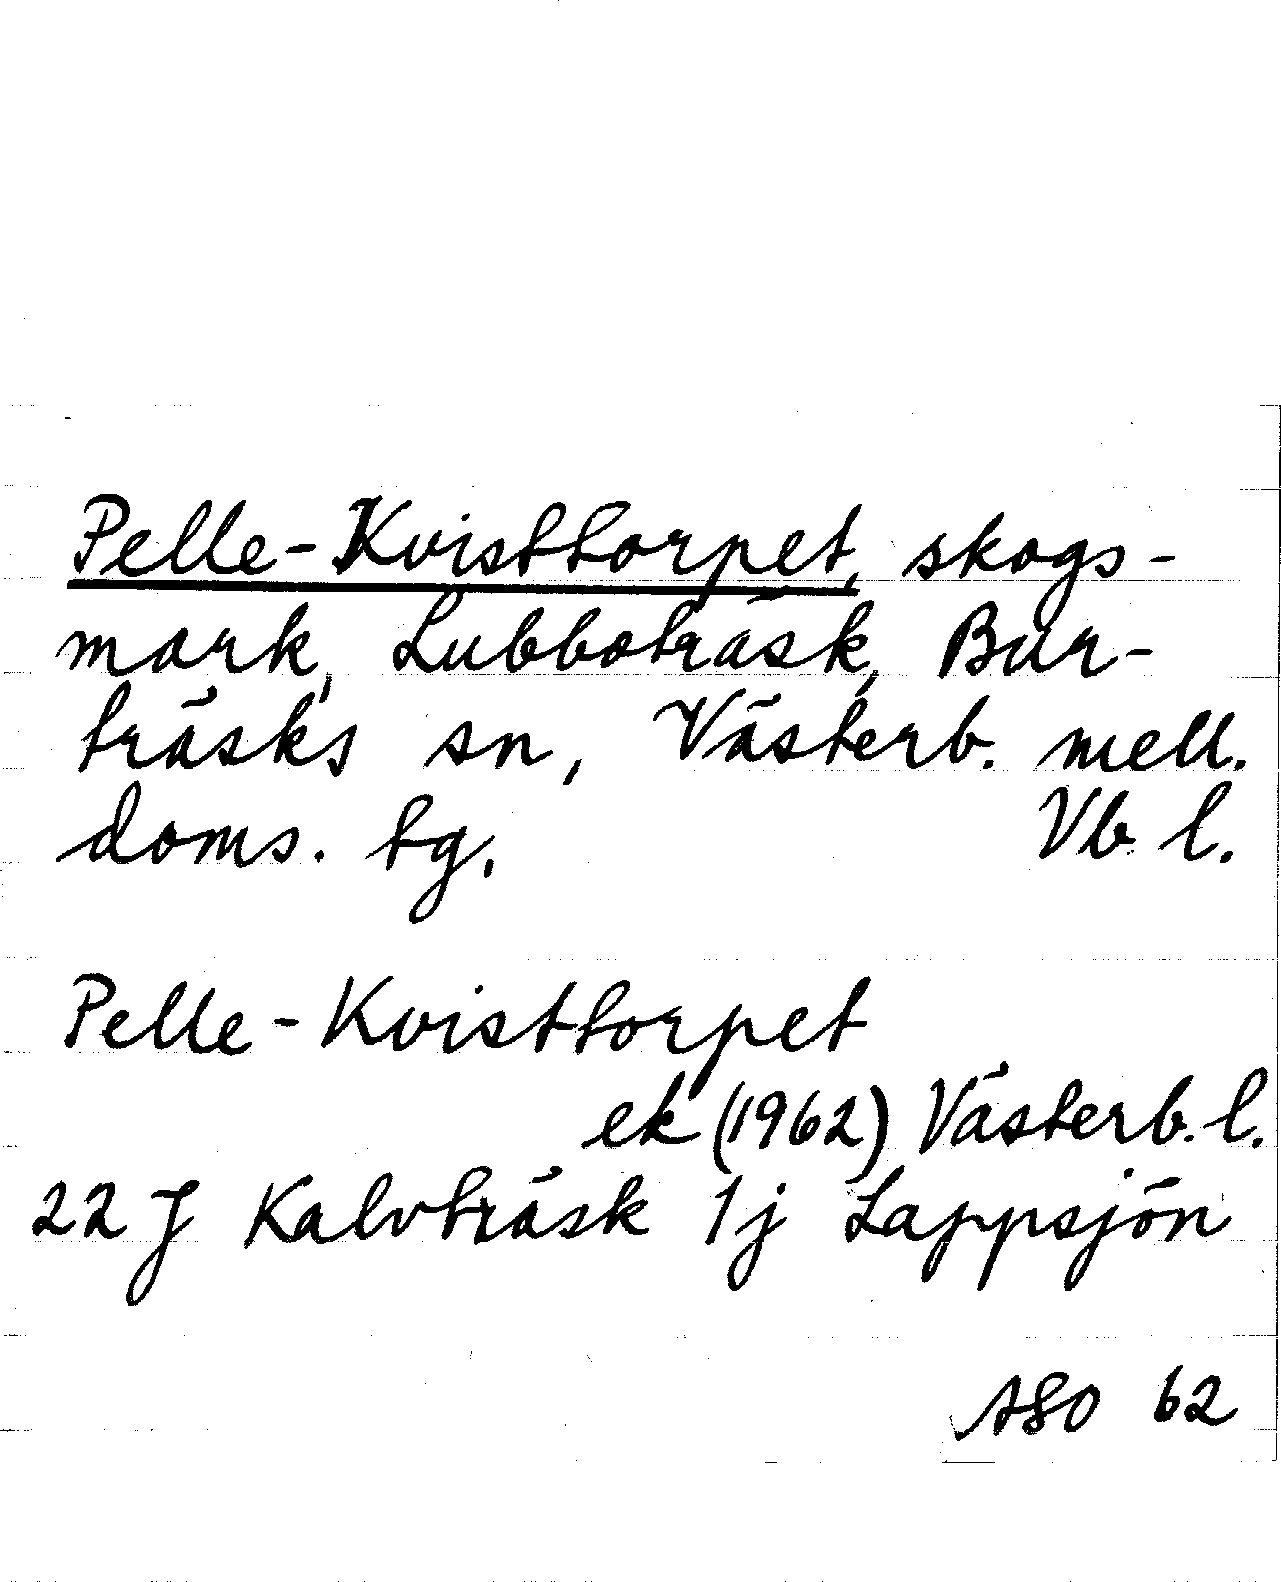 Pelle-Kvisttorpet, skogs-
mark, Lubboträsk, Bur-
träsks sn, Västerb. mell.
doms. tg. Vb l.
Pelle-Kvisttorpet
ek (1962) Västerb. l.
22 J Kalvträsk 1j Lappsjön
ASO 62